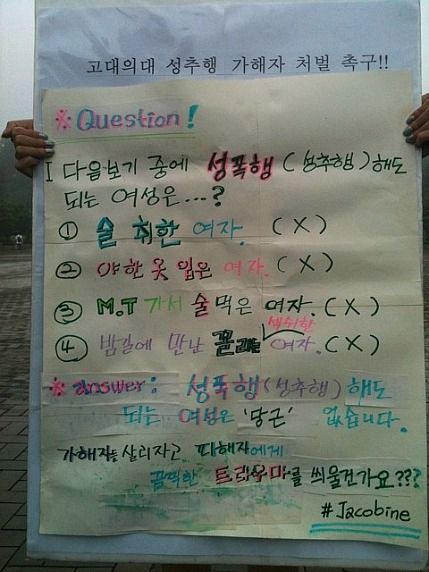 고대의대 성추행 가해자 처벌 촉구!!
※ Question!
I 다음보기 중에 성폭행 (성추행) 해도
되는 여성은...?
① 술 취한 여자. (X)
② 야한 옷 입은 여자. (X)
③ M.T 가서 술 먹은 여자. (X)
섹쉬한
④ 밤길에 만난 꼴리는 여자. (X)
※ answer: 성폭행 (성추행) 해도
되는 여성은 '당근' 없습니다.
가해자를 살리자고 피해자에게
끔찍한 트라우마를 씌울건가요???
#Jacobine